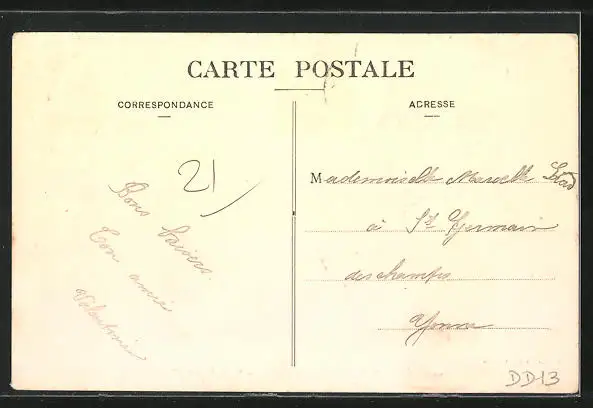 CARTE POSTALE
CORRESPONDANCE
ADRESSE
21
Bons baisers.
Ton amie
Valentine
Mademoiselle Marcelle
à St Germain
des champs
Yonne
DD13